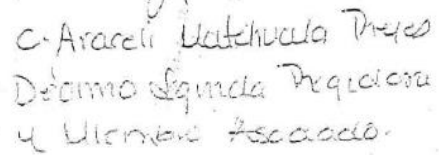 C. Araceli Matehuala Reyes
Décimo Segunda Regidora
y Miembro Asociado.